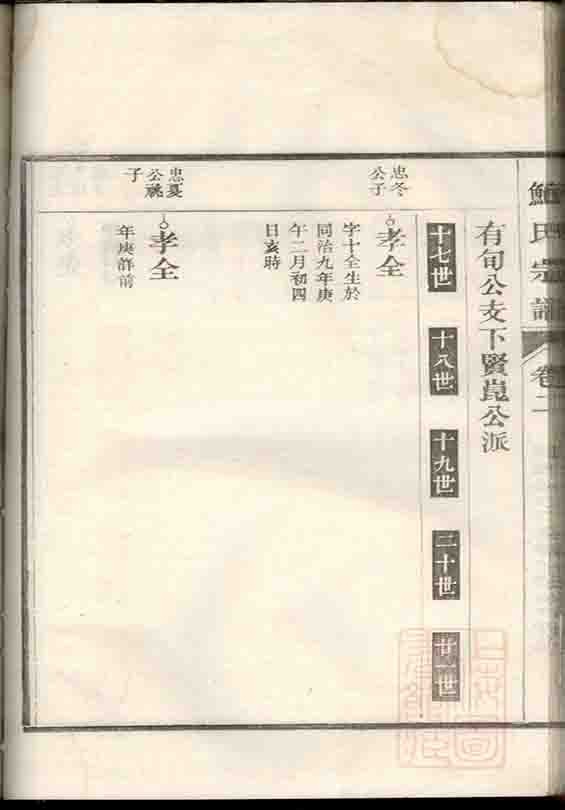 氏宗譜
卷二
有旬公支下賢崑公派
十七世
十八世
十九世
二十世
廿一世
忠冬
公子
孝全
字十全生於
同治九年庚
午二月初四
日亥時
忠夏
公祧
子
孝全
年庚詳前
上海圖
書館藏